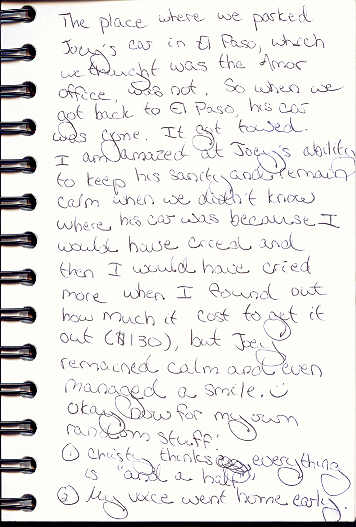 The place where we parked
Joey's car in El Paso, which
we thought was the Amor
office, was not. So when we
got back to El Paso, his car
was gone. It got towed.
I am amazed at Joey's ability
to keep his sanity and remain
calm when we didn't know
where his car was because I
would have cried and
then I would have cried
more when I found out
how much it cost to get it
out ($130), but Joey
remained calm and even
managed a smile. ☺
Okay, now for my own
random stuff:
① Christy thinks everything
is "and a half"
② My voice went home early.